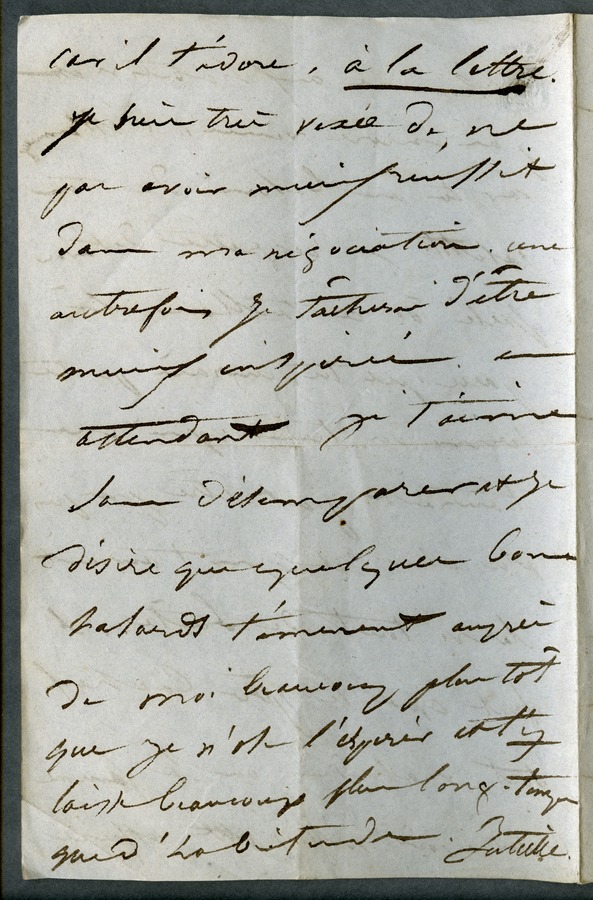 car il t'adore, à la lettre.
je suis très vexée de ne
pas avoir mieux réussit
dans ma négociation. une
autrefois je tâcherai d'être
mieux inspirée. en
attendant je t'aime
sans désemparer et je
désire que quelques bons
hasards t'amenent auprès
de moi beaucoup plus tôt
que je n'ose l'espérer et t'y
laisse beaucoup plus long-temps
que d'habitude. Juliette.